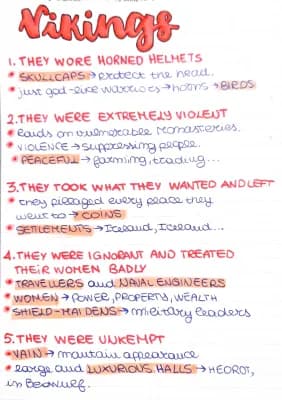 Vikings
1. THEY WORE HORNED HELMETS
• SKULLCAPS → protect the head.
• just god-like warriors → horns → BIRDS
2. THEY WERE EXTREMELY VIOLENT
• Raids on vulnerable monasteries.
• VIOLENCE → suppressing people.
• PEACEFUL → farming, trading...
3. THEY TOOK WHAT THEY WANTED AND LEFT
• they pillaged every place they
went to → COINS
• SETLEMENTS → Iceland, Iceland...
4. THEY WERE IGNORANT AND TREATED
THEIR WOMEN BADLY
• TRAVELLERS and NAVAL ENGINEERS
• WOMEN → POWER, PROPERTY, WEALTH
• SHIELD-MAIDENS → military leaders
5. THEY WERE UNKEMPT
• VAIN → mantain appearance
• large and LUXURIOUS HALLS → HEOROT,
in Beowulf.